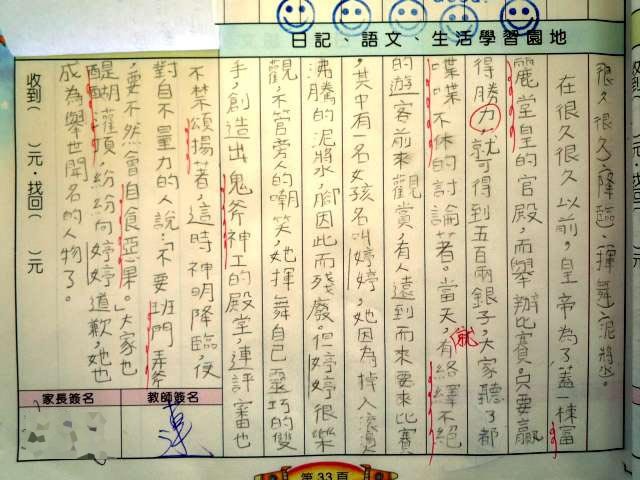 日記、語文、生活學習園地
很久很久降臨、揮舞泥將水。
在很久很久以前，皇帝為了蓋一棟富
麗堂皇的官殿，而舉辦比賽，只要贏
得勝力，就可得到五百兩銀子，大家聽了都
喋喋不休的討論著。當天，就有絡繹不絕
的遊客前來觀賞，有人遠到而來要來比賽
，其中有一名女孩名叫婷婷，她因為掉入滾燙
沸騰的泥將水，腳因此而殘廢。但婷婷很樂
觀，不管旁人的嘲笑，她揮舞自己靈巧的雙
手，創造出鬼斧神工的殿堂，連評審也
不禁頌揚著，這時神明降臨，便
對自不量力的人說：「不要班門弄斧
，要不然會自食惡果。」大家也
醍醐灌頂，紛紛向婷婷道歉，她也
成為舉世聞名的人物了。
收到（ ）元，找回（ ）元
教師簽名
家長簽名
第33頁